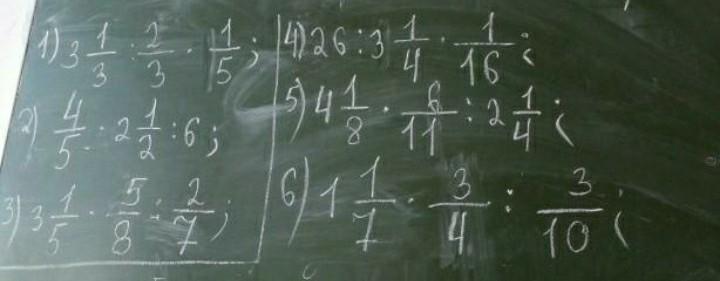 1) 3 1/3 : 2/3 · 1/5 ;
2) 4/5 · 2 1/2 : 6 ;
3) 3 1/5 · 5/8 : 2/7 ;
4) 26 : 3 1/4 · 1/16 ;
5) 4 1/8 · 6/11 : 2 1/4 ;
6) 1 1/7 · 3/4 : 3/10 ;